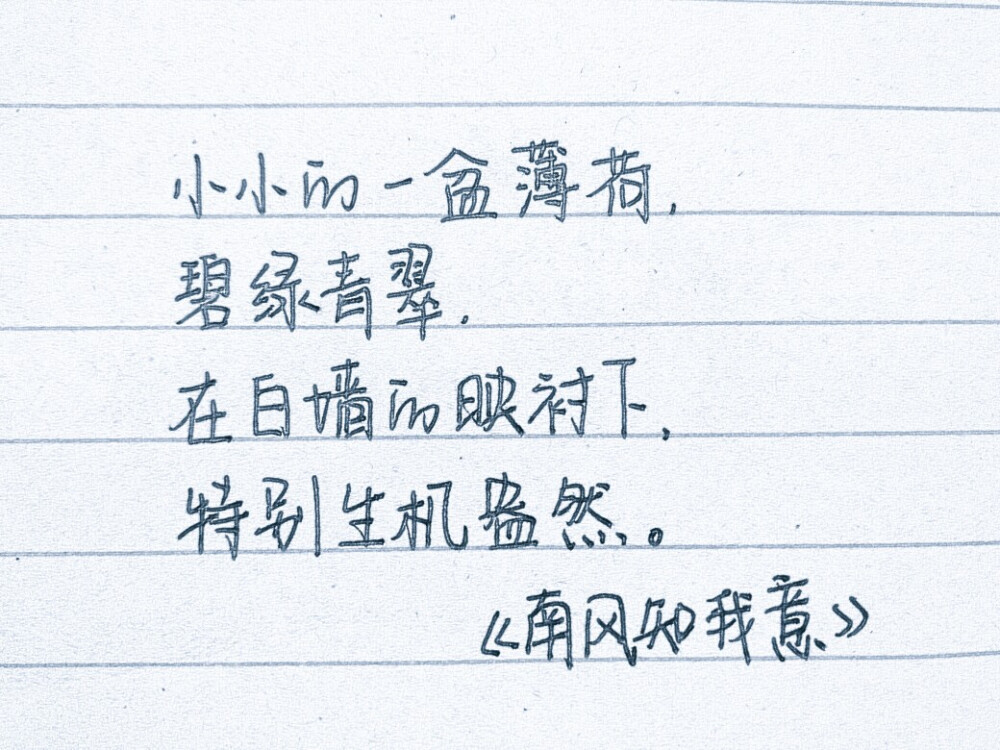 小小的一盆薄荷,
碧绿青翠.
在白墙的映衬下,
特别生机盎然。
《南风知我意》